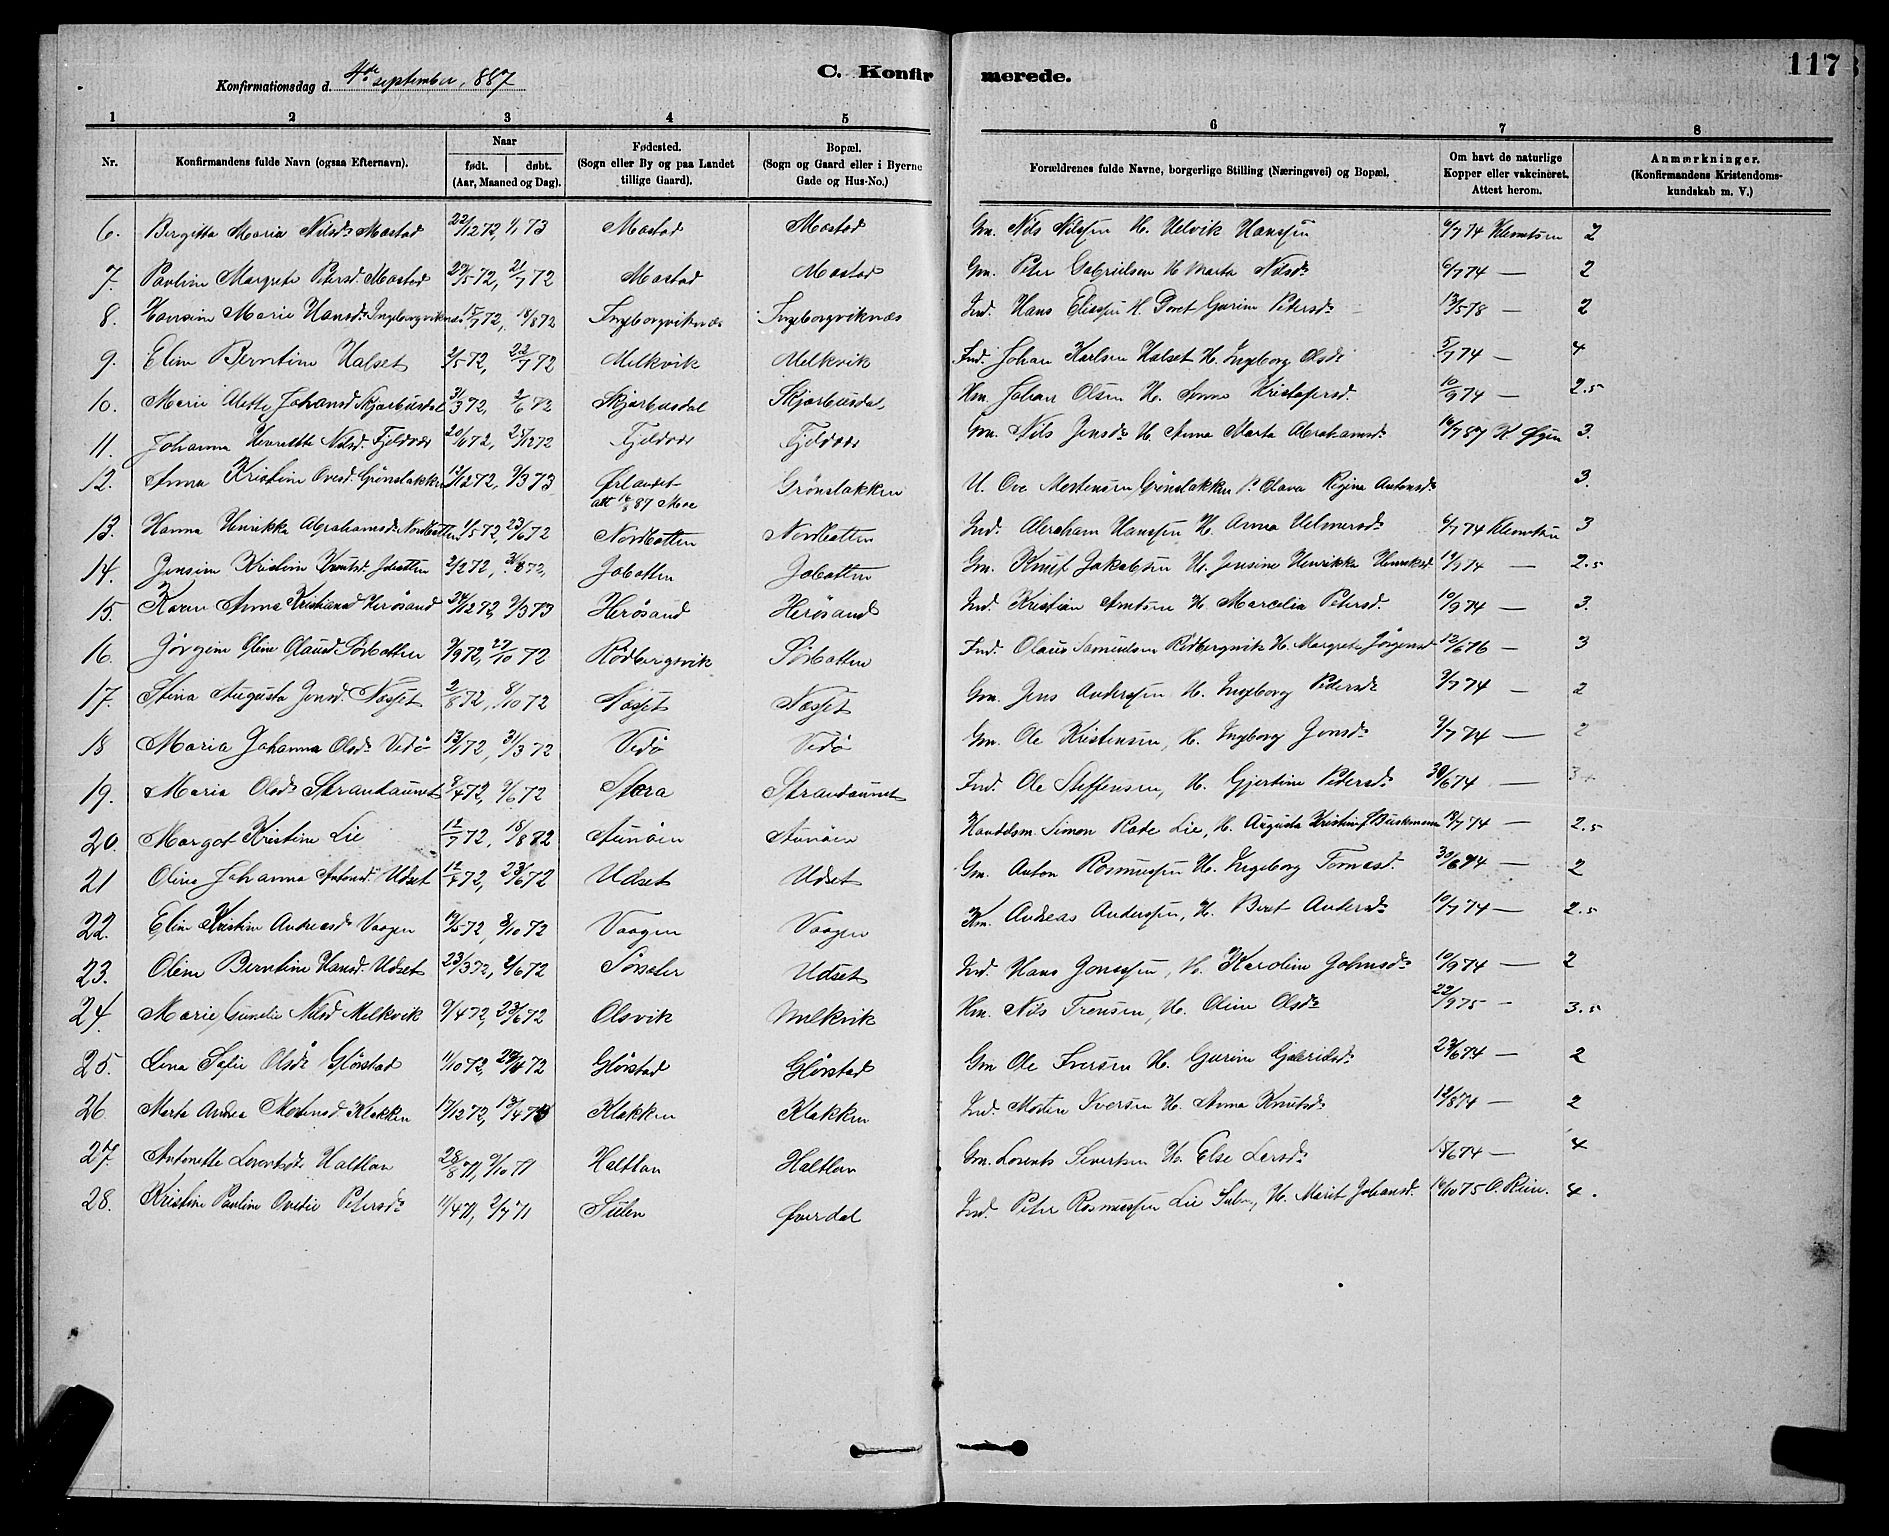 Konfirmationsdag d. 4de september 1887
C. Konfirmerede.
117
1 2 3 4 5 6 7 8
Nr.
Konfirmandens fulde Navn (ogsaa Efternavn).
Naar
født. døbt.
(Aar, Maaned og Dag).
Fødested.
(Sogn eller By og paa Landet
tillige Gaard).
Bopæl.
(Sogn og Gaard eller i Byerne
Gade og Hus-No.)
Forældrenes fulde Navne, borgerlige Stilling (Næringsvei) og Bopæl.
Om havt de naturlige
Kopper eller vakcineret.
Attest herom.
Anmærkninger.
(Konfirmandens Kristendoms-
kundskab m. V.)
6. Birgitta Maria Nilsd. Mostad 22/12 72, 1/1 73 Mostad Mostad Gm. Nils Nilssen H. Helvik Hanssen 6/7 74 Klemtsen 2
7. Pauline Margrete Petersd. Mostad 29/5 72, 21/7 72 Mostad Mostad Gm. Peter Gabrielsen H. Marta Nilsdr. 6/7 74 — 2
8. Hansine Marie Hansd. Ingeborgviknæs 15/7 72, 18/8 72 Ingeborgviknæs Ingeborgviknæs Ind. Hans Elissen H. Gurine Petersdr. 13/5 78 — 2
9. Eline Berntine Halset 2/5 72, 22/7 72 Melkvik Melkvik Ind. Johan Karlsen Halset H. Ingeborg Olsdr. 5/7 74 — 4
10. Marie Alette Johansd. Skjærbusdal 3/3 72, 2/6 72 Skjærbusdal Skjærbusdal Hm. Johan Olsen H. Anna Kristofersd. 10/9 74 — 2.5
11. Johanna Henrette Nilsd. Fjeldvær 20/6 72, 28/12 72 Fjeldvær Fjeldvær Gm. Nils Jensdr. H. Anna Marta Abrahamsdr. 16/7 87 K. Øyen 3.
12. Anna Kristine Ovesd. Grønslakken 12/12 72, 9/3 73 Ørlandet Grønslakken U. Ove Mortensen Grønslakken P. Olava Regine Antonsdr. 3.
att 16/8 87 Moe
13. Hanna Henrikka Abrahamsdr. Nordbotten 1/5 72, 23/6 72 Nordbotten Nordbotten Ind. Abraham Hanssen H. Anna Velmersdr. 6/7 74 Klemtsen 3
14. Jensine Kristine Knutsd. Jobotten 2/2 72, 31/8 72, Jobotten Jobotten Gm. Knut Jakobsen H. Jensine Henrikka Henriksd. 12/9 74 — 2.5
15. Karen Anna Kristiansd. Herøsand 24/12 72, 9/3 73 Herøsand Herøsand Ind. Kristian Arntsen H. Marcelia Petersd. 10/9 74 — 3.
16. Jørgine Oline Olausd. Sørbotten 9/9 72, 27/10 72 Rødbergsvik Sørbotten Ind. Olaus Samuelsen Rødbergsvik H. Margrete Jørgensd. 12/6 76 — 3
17. Stina Augusta Jensd. Næsset 2/8 72, 8/10 72 Næsset Næsset Gm. Jens Anderssen H. Ingeborg Pedersdr. 3/7 74 — 2
18 Maria Johanna Olsdr. Vedø 13/1 72, 31/3 72 Vedø Vedø Gm. Ole Kristensen, H. Ingeborg Jonsdr. 9/7 74 — 2
19. Maria Olsdr. Strandaunet 8/4 72, 9/6 72 Støra Strandaunet Ind. Ole Steffensen, H. Gjertine Petersdr. 30/6 74 — 3+
20. Margot Kristine Lie 12/7 72, 18/8 72 Aunøen Aunøen Handelsm. Simon Rode Lie, H. Augusta Kristine f. Buschmann 18/7 74 — 2.5
21 Olina Johanna Antonsd. Udset 12/4 72, 23/6 72 Udset Udset Gm. Anton Rasmussen H. Ingeborg Tomasd. 30/6 74 — 2
22. Eline Kristine Andreasdr. Vaagen 19/5 72, 8/10 72 Vaagen Vaagen Hm. Andreas Anderssen, H. Beret Andersdr. 10/7 74 — 2.5
23. Oline Berntine Hansd. Udset 23/3 72, 2/6 72 Sørseter Udset Ind. Hans Jonassen, H. Karoline Johnsdr. 10/9 74 — 2
24. Marie Gunelie Nilsd. Melkvik 9/4 72, 23/6 72 Olsvik Melkvik Hm. Nils Trensen, H. Oline Olsdr. 22/9 75 — 3.5
25. Lena Sofie Olsdr. Glørstad 11/10 72, 29/11 72 Glørstad Glørstad Gm Ole Iversen H. Gurine Gjærildsdr. 23/6 74 — 2
26. Marta Andrea Mortensd. Klakken 17/12 72, 13/4 73 Klakken Klakken Ind. Morten Iversen H. Anna Knutsdr. 12/8 74 — 2
27. Antonette Lorentsdr. Haltlan 28/8 71, 9/10 71 Haltlan Haltlan Gm. Lorents Sivertsen H. Else Larsdr. 18/6 74 — 4
28. Kristine Pauline Ovedie Petersdr. 11/4 71, 2/7 71 Sulen Øverdal Ind. Peter Rasmussen Lie Sulen, H. Marit Johansd. 16/10 75 O. Rein. 4.